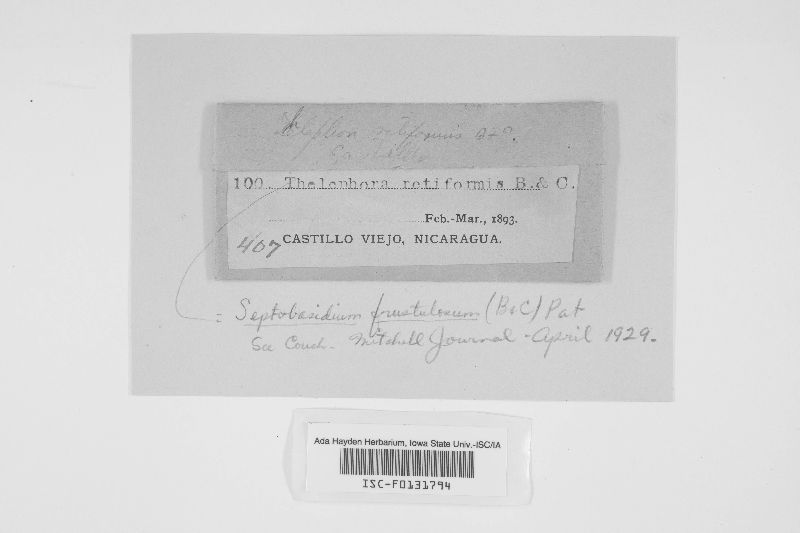 retiformis B&C.
100. Thelephora retiformis B. & C.
Feb.-Mar., 1893.
407 CASTILLO VIEJO, NICARAGUA.
= Septobasidium frustulosum (B&C) Pat
See Couch - Mitchell Journal - April 1929.
Ada Hayden Herbarium, Iowa State Univ.-ISC/IA
ISC-F0131794